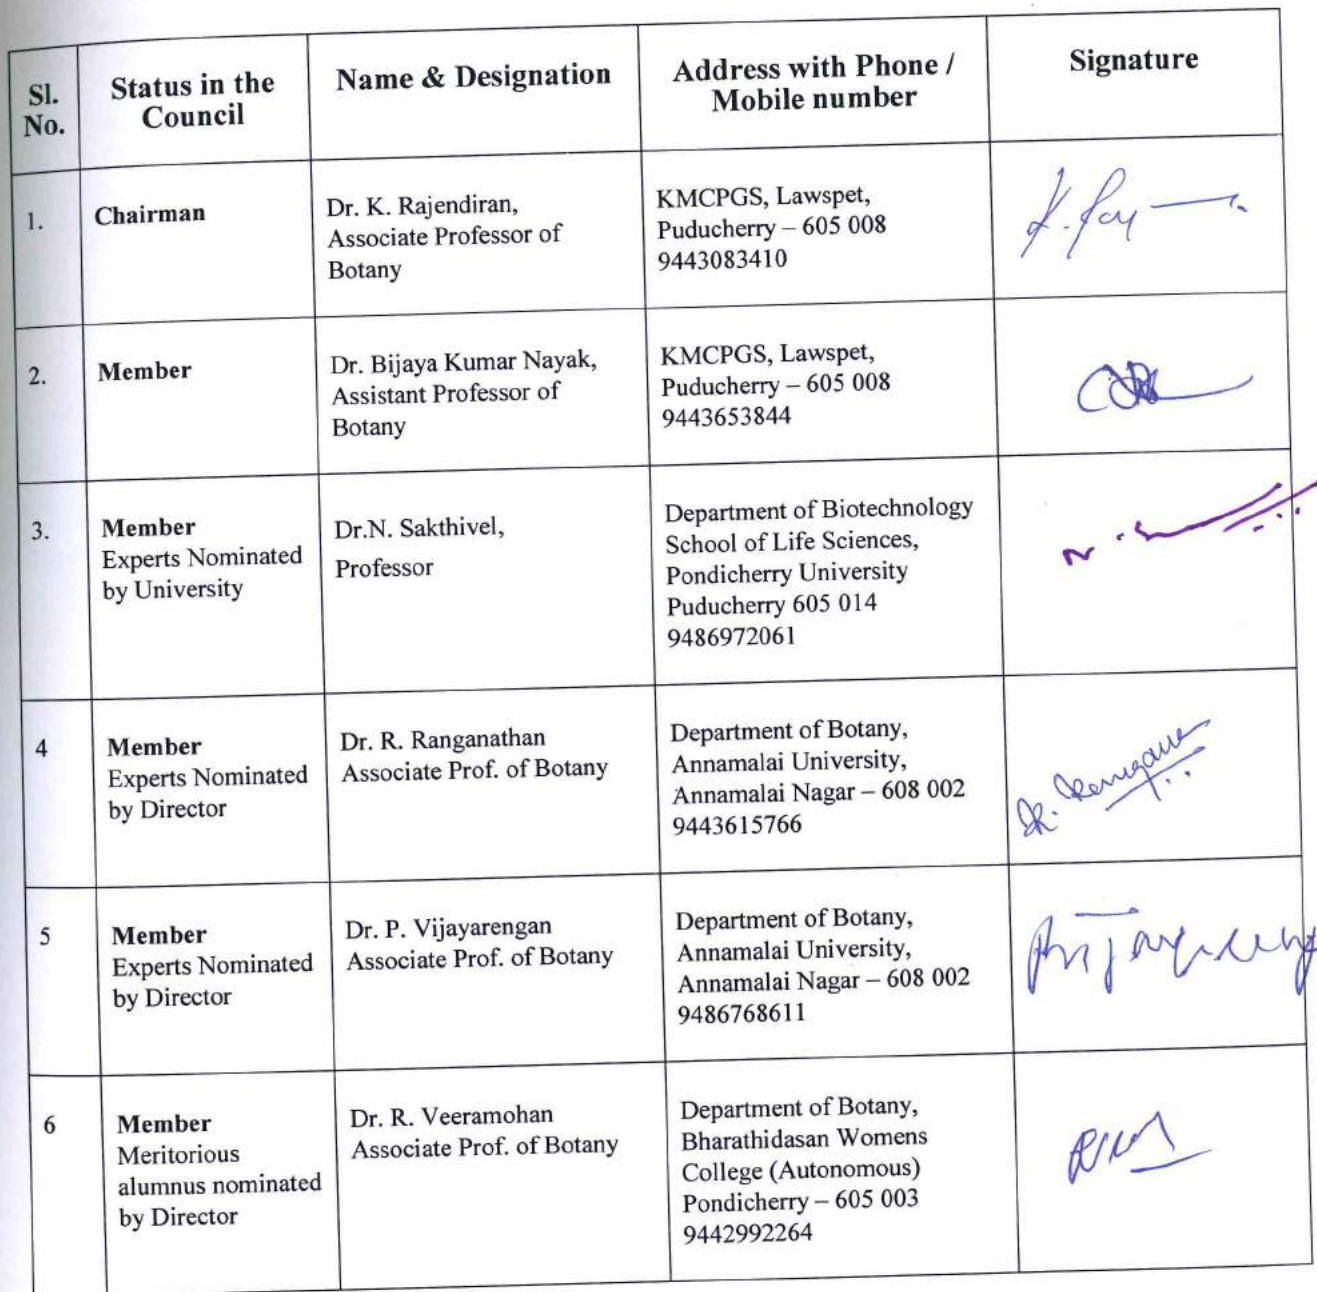 Sl.
No.
Status in the
Council
Name & Designation
Address with Phone /
Mobile number
Signature
1.
Chairman
Dr. K. Rajendiran,
Associate Professor of
Botany
KMCPGS, Lawspet,
Puducherry – 605 008
9443083410
2.
Member
Dr. Bijaya Kumar Nayak,
Assistant Professor of
Botany
KMCPGS, Lawspet,
Puducherry – 605 008
9443653844
3.
Member
Experts Nominated
by University
Dr.N. Sakthivel,
Professor
Department of Biotechnology
School of Life Sciences,
Pondicherry University
Puducherry 605 014
9486972061
4
Member
Experts Nominated
by Director
Dr. R. Ranganathan
Associate Prof. of Botany
Department of Botany,
Annamalai University,
Annamalai Nagar – 608 002
9443615766
5
Member
Experts Nominated
by Director
Dr. P. Vijayarengan
Associate Prof. of Botany
Department of Botany,
Annamalai University,
Annamalai Nagar – 608 002
9486768611
6
Member
Meritorious
alumnus nominated
by Director
Dr. R. Veeramohan
Associate Prof. of Botany
Department of Botany,
Bharathidasan Womens
College (Autonomous)
Pondicherry – 605 003
9442992264